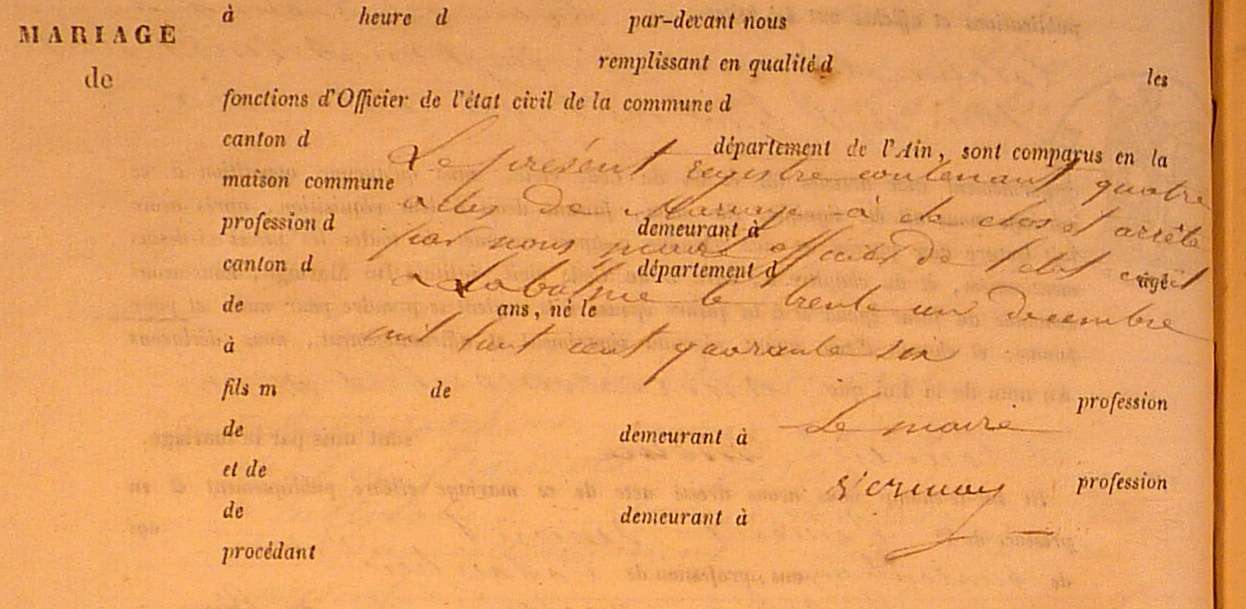 à heure d par-devant nous
MARIAGE
remplissant en qualité d les
de
fonctions d'Officier de l'état civil de la commune d
canton d département de l'Ain, sont comparus en la
Le présent registre contenant quatre
maison commune
actes de Mariage a été clos et arrêté
profession d demeurant à
par nous maire officier de l'état civil
canton d département d âgé
Labalme le trente un decembre
de ans, né le
mil huit cent quarante six
à
fils m de profession
de demeurant à
Le maire
et de profession
de demeurant à
procédant